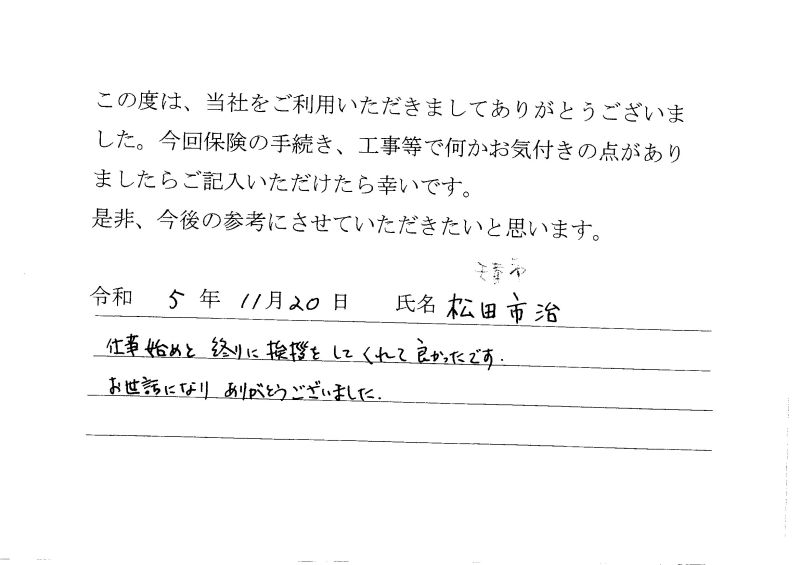 この度は、当社をご利用いただきましてありがとうございま
した。今回保険の手続き、工事等で何かお気付きの点があり
ましたらご記入いただけたら幸いです。
是非、今後の参考にさせていただきたいと思います。
令和 5 年 11月20日 氏名 松田市治
仕事始めと 終りに 挨拶を してくれて 良かったです.
お世話になり ありがとうございました.